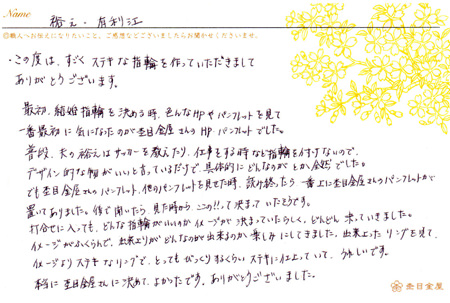 Name 裕之・有利江
◎職人へお伝えになりたいこと、ご感想などございましたらお聞かせくださいませ。
・この度は、すごくステキな指輪を作っていただきまして
ありがとうございます。
最初、結婚指輪を決める時、色んなHPやパンフレットを見て
一番最初に気になったのが杢目金屋さんのHPパンフレットでした。
普段、夫の裕之はサッカーを教えたり、仕事をする時など指輪を付けないので、
デザイン的な物がいいと言っているだけで、具体的にどんなのがとか全然でした。
でも杢目金屋さんのパンフレット、他のパンフレットを見せた時、読み終ったら一番上に杢目金屋さんのパンフレットが
置いてありました。後で聞いたら、見た時から、ここ!!って決まっていたそうです。
打合せに入っても、どんな指輪がいいのかイメージが決まっていたらしく、どんどん決っていきました。
イメージがふくらんで、出来上りがどんなのが出来るのか楽しみにしてきました。出来上ったリングを見て、
イメージよりステキなリングで、とってもびっくりするくらいステキに仕上っていて、うれしいです。
本当に杢目金屋さんに決めて、よかったです。ありがとうございました。
杢目金屋